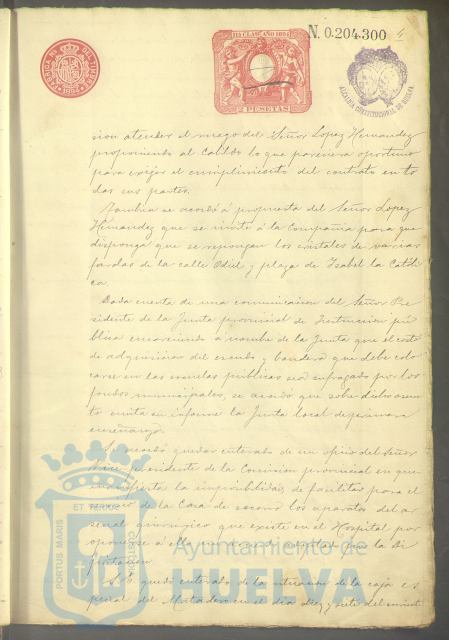 FÁBRICA NL. DEL TIMBRE
1894
11ª CLASE AÑO 1894
2 PESETAS
N. 0.204.300
4
ALCALDIA CONSTITUCIONAL DE HUELVA
sion atender el ruego del Señor Lopez Hernandez
proponiendo al Cabildo lo que pareciera oportuno
para exijir el cumplimiento del contrato en to
das sus partes.
Tambien se acordó á propuesta del Señor Lopez
Hernandez que se invite á la Compañia para que
disponga que se repongan los cristales de varias
farolas de la calle Odiel y plaza de Isabel la Católi
ca.
Dada cuenta de una comunicacion del Señor Pre
sidente de la Junta provincial de Instruccion pú
blica encareciendo á nombre de la Junta que el costo
de adquisicion del escudo y bandera que debe colo
carse en las escuelas públicas sea sufragado por los
fondos municipales, se acordó que sobre dicho asun
to emita su informe la Junta local de primera
enseñanza.
Se acordó quedar enterado de un oficio del Señor
Vice presidente de la Comision provincial en que
manifiesta la imposibilidad de facilitar para el
servicio de la Casa de socorro los aparatos del ar
senal quirurgico que existe en el Hospital por
oponerse á ella
la Di
putacion.
Se quedó enterado de la situacion de la caja es
pecial del Matadero en el dia diez y siete del corriente
PORTUS MARIS
ET TERRAE
CUSTODIA
Ayuntamiento de
HUELVA